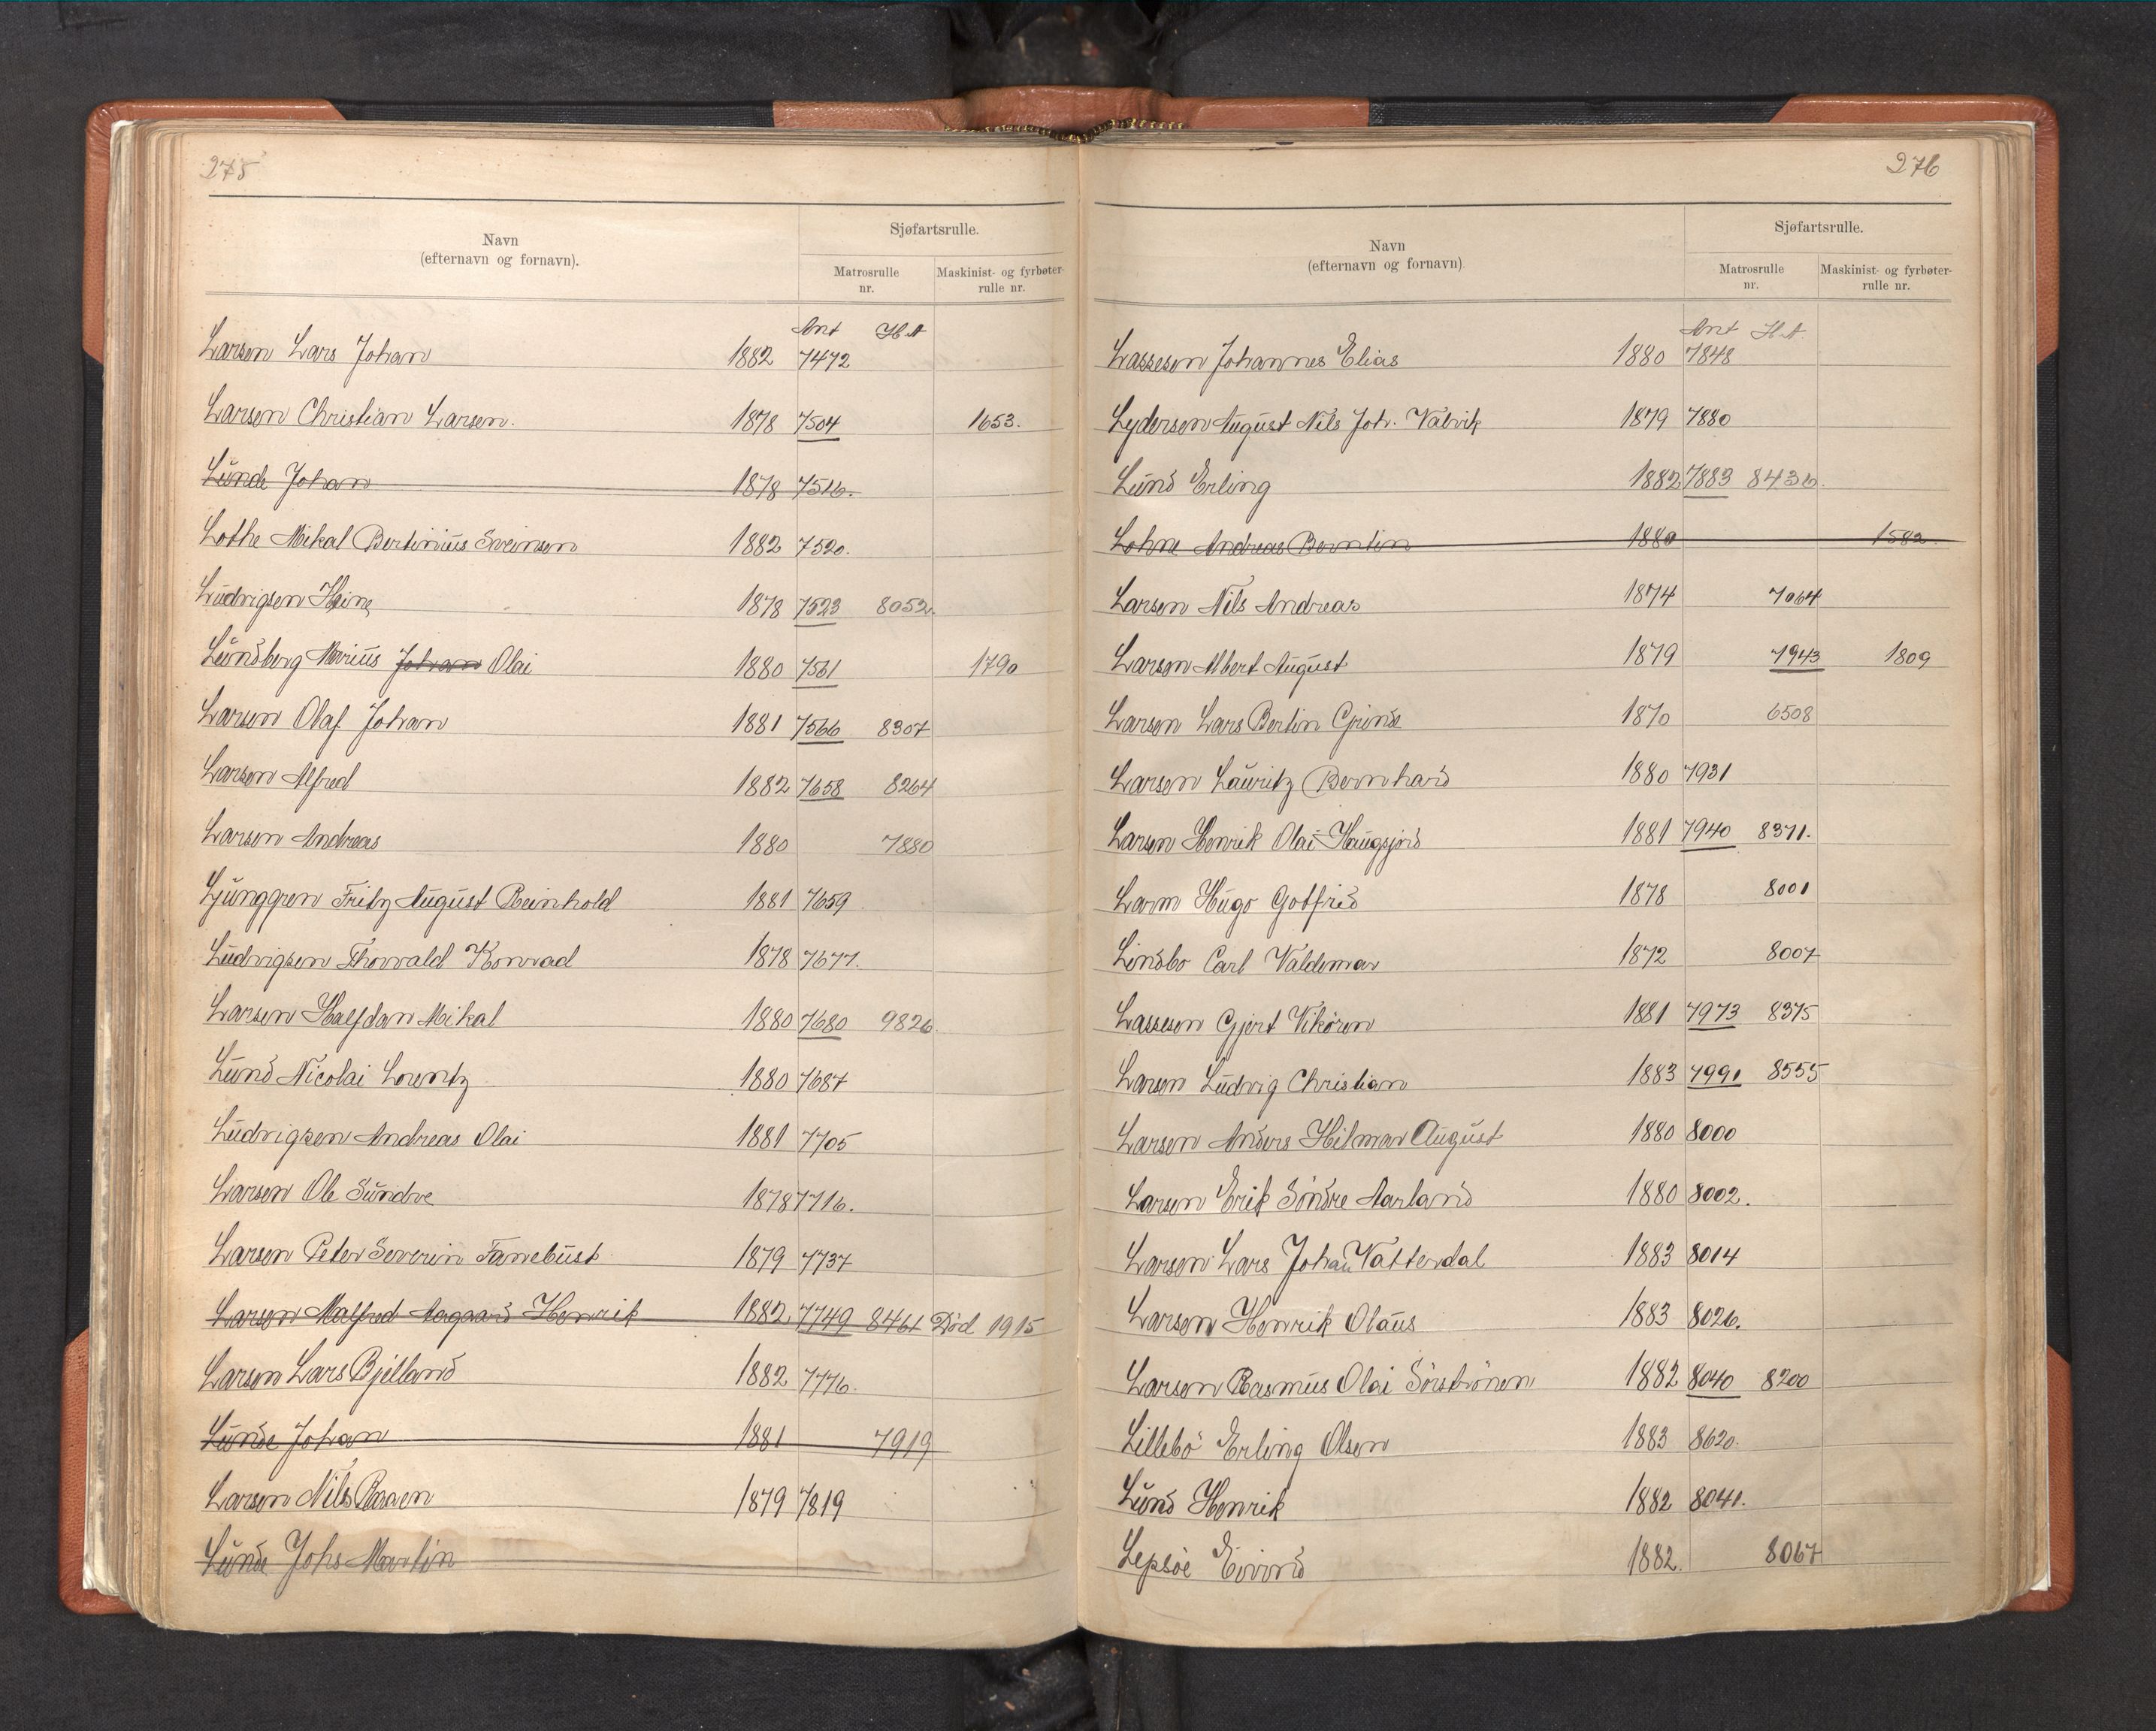 275
Navn
(efternavn og fornavn).
Sjøfartsrulle.
Matrosrulle nr.
Maskinist- og fyrbøter-rulle nr.
Ant H.A
Larsen Lars Johan 1882 7472
Larsen Christian Larsen. 1878 7504 1653.
Lunde Johan 1878 7516.
Lothe Mikal Bertinius Sveinsen 1882 7520.
Ludvigsen Heine 1878 7523 8052.
Lundberg Marius Johan Olai 1880 7561 1790
Larsen Olaf Johan 1881 7566 8307
Larsen Alfred 1882 7658 8264
Larsen Andreas 1880 7880
Ljunggren Fritz August Reinhold 1881 7659
Ludvigsen Thorvald Konrad 1878 7677.
Larsen Halfdan Mikal 1880 7680 9826.
Lund Nicolai Lorentz 1880 7687
Ludvigsen Andreas Olai 1881 7705
Larsen Ole Sundve 1878 7716.
Larsen Peter Severin Tanebust 1879 7737
Larsen Malfred Aagaard Henrik 1882 7749 8461 Död 1915
Larsen Lars Bjelland 1882 7776.
Lunde Johan 1881 7919
Larsen Nils 1879 7819
Lunde Johs Martin
276
Navn
(efternavn og fornavn)
Sjøfartsrulle.
Matrosrulle nr.
Maskinist- og fyrbøter-rulle nr.
Ant H.A
Lassesen Johannes Elias 1880 7848
Lydersen August Nils Joh. Valvik 1879 7880
Lund Erling 1882 7883 8436.
Lohne Andreas Berntin 1880 1582.
Larsen Nils Andreas 1874 7064
Larsen Albert August 1879 7943 1809
Larsen Lars Bertin Gjerde 1870 6508
Larsen Lauritz Bernhard 1880 7931
Larsen Henrik Olai Haugsjerd 1881 7940 8371.
Larm Hugo Gotfred 1878 8001
Lindbo Carl Valdemar 1872 8007
Lassesen Gjert Vikören 1881 7973 8375
Larsen Ludvig Christian 1883 7991 8555
Larsen Anders Hilmar August 1880 8000
Larsen Erik Söndre Aarland 1880 8002.
Larsen Lars Johan Vatterdal 1883 8014
Larsen Henrik Olaus 1883 8026.
Larsen Rasmus Olai Sörströnen 1882 8040 8200
Lillebö Erling Olsen 1883 8620.
Lund Henrik 1882 8041.
Lepsöe Eivind 1882. 8067